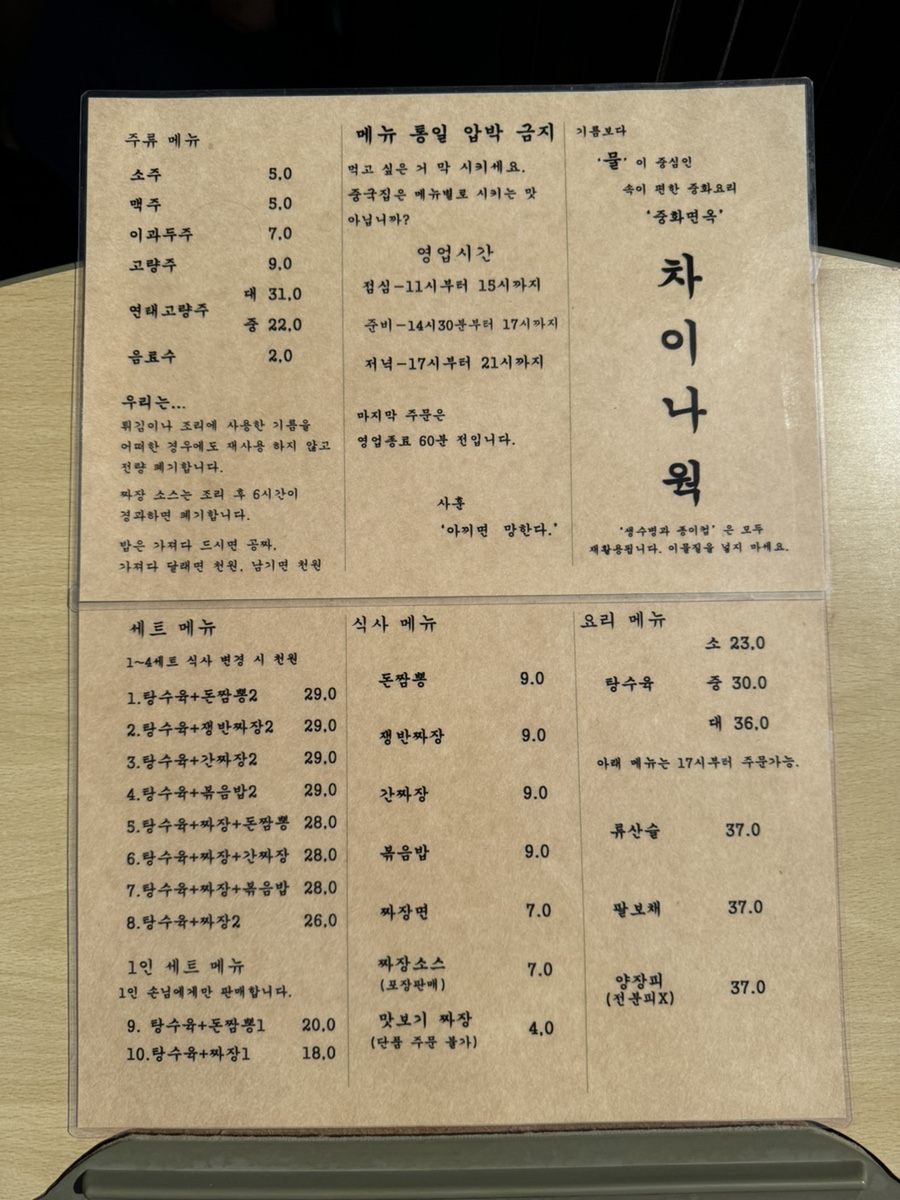 주류 메뉴
소주 5.0
맥주 5.0
이과두주 7.0
고량주 9.0
연태고량주 대 31.0
중 22.0
음료수 2.0
우리는...
튀김이나 조리에 사용한 기름을
어떠한 경우에도 재사용 하지 않고
전량 폐기합니다.
짜장 소스는 조리 후 6시간이
경과하면 폐기합니다.
밥은 가져다 드시면 공짜.
가져다 달래면 천원, 남기면 천원
메뉴 통일 압박 금지
먹고 싶은 거 막 시키세요.
중국집은 메뉴별로 시키는 맛
아닙니까?
영업시간
점심-11시부터 15시까지
준비-14시30분부터 17시까지
저녁-17시부터 21시까지
마지막 주문은
영업종료 60분 전입니다.
사훈
'아끼면 망한다.'
기름보다
'물' 이 중심인
속이 편한 중화요리
'중화면옥'
차
이
나
웍
'생수병과 종이컵' 은 모두
재활용됩니다. 이물질을 넣지 마세요.
세트 메뉴
1~4세트 식사 변경 시 천원
1.탕수육+돈짬뽕2 29.0
2.탕수육+쟁반짜장2 29.0
3.탕수육+간짜장2 29.0
4.탕수육+볶음밥2 29.0
5.탕수육+짜장+돈짬뽕 28.0
6.탕수육+짜장+간짜장 28.0
7.탕수육+짜장+볶음밥 28.0
8.탕수육+짜장2 26.0
1인 세트 메뉴
1인 손님에게만 판매합니다.
9. 탕수육+돈짬뽕1 20.0
10.탕수육+짜장1 18.0
식사 메뉴
돈짬뽕 9.0
쟁반짜장 9.0
간짜장 9.0
볶음밥 9.0
짜장면 7.0
짜장소스 7.0
(포장판매)
맛보기 짜장 4.0
(단품 주문 불가)
요리 메뉴
소 23.0
탕수육 중 30.0
대 36.0
아래 메뉴는 17시부터 주문가능.
류산슬 37.0
팔보채 37.0
양장피 37.0
(전분피X)